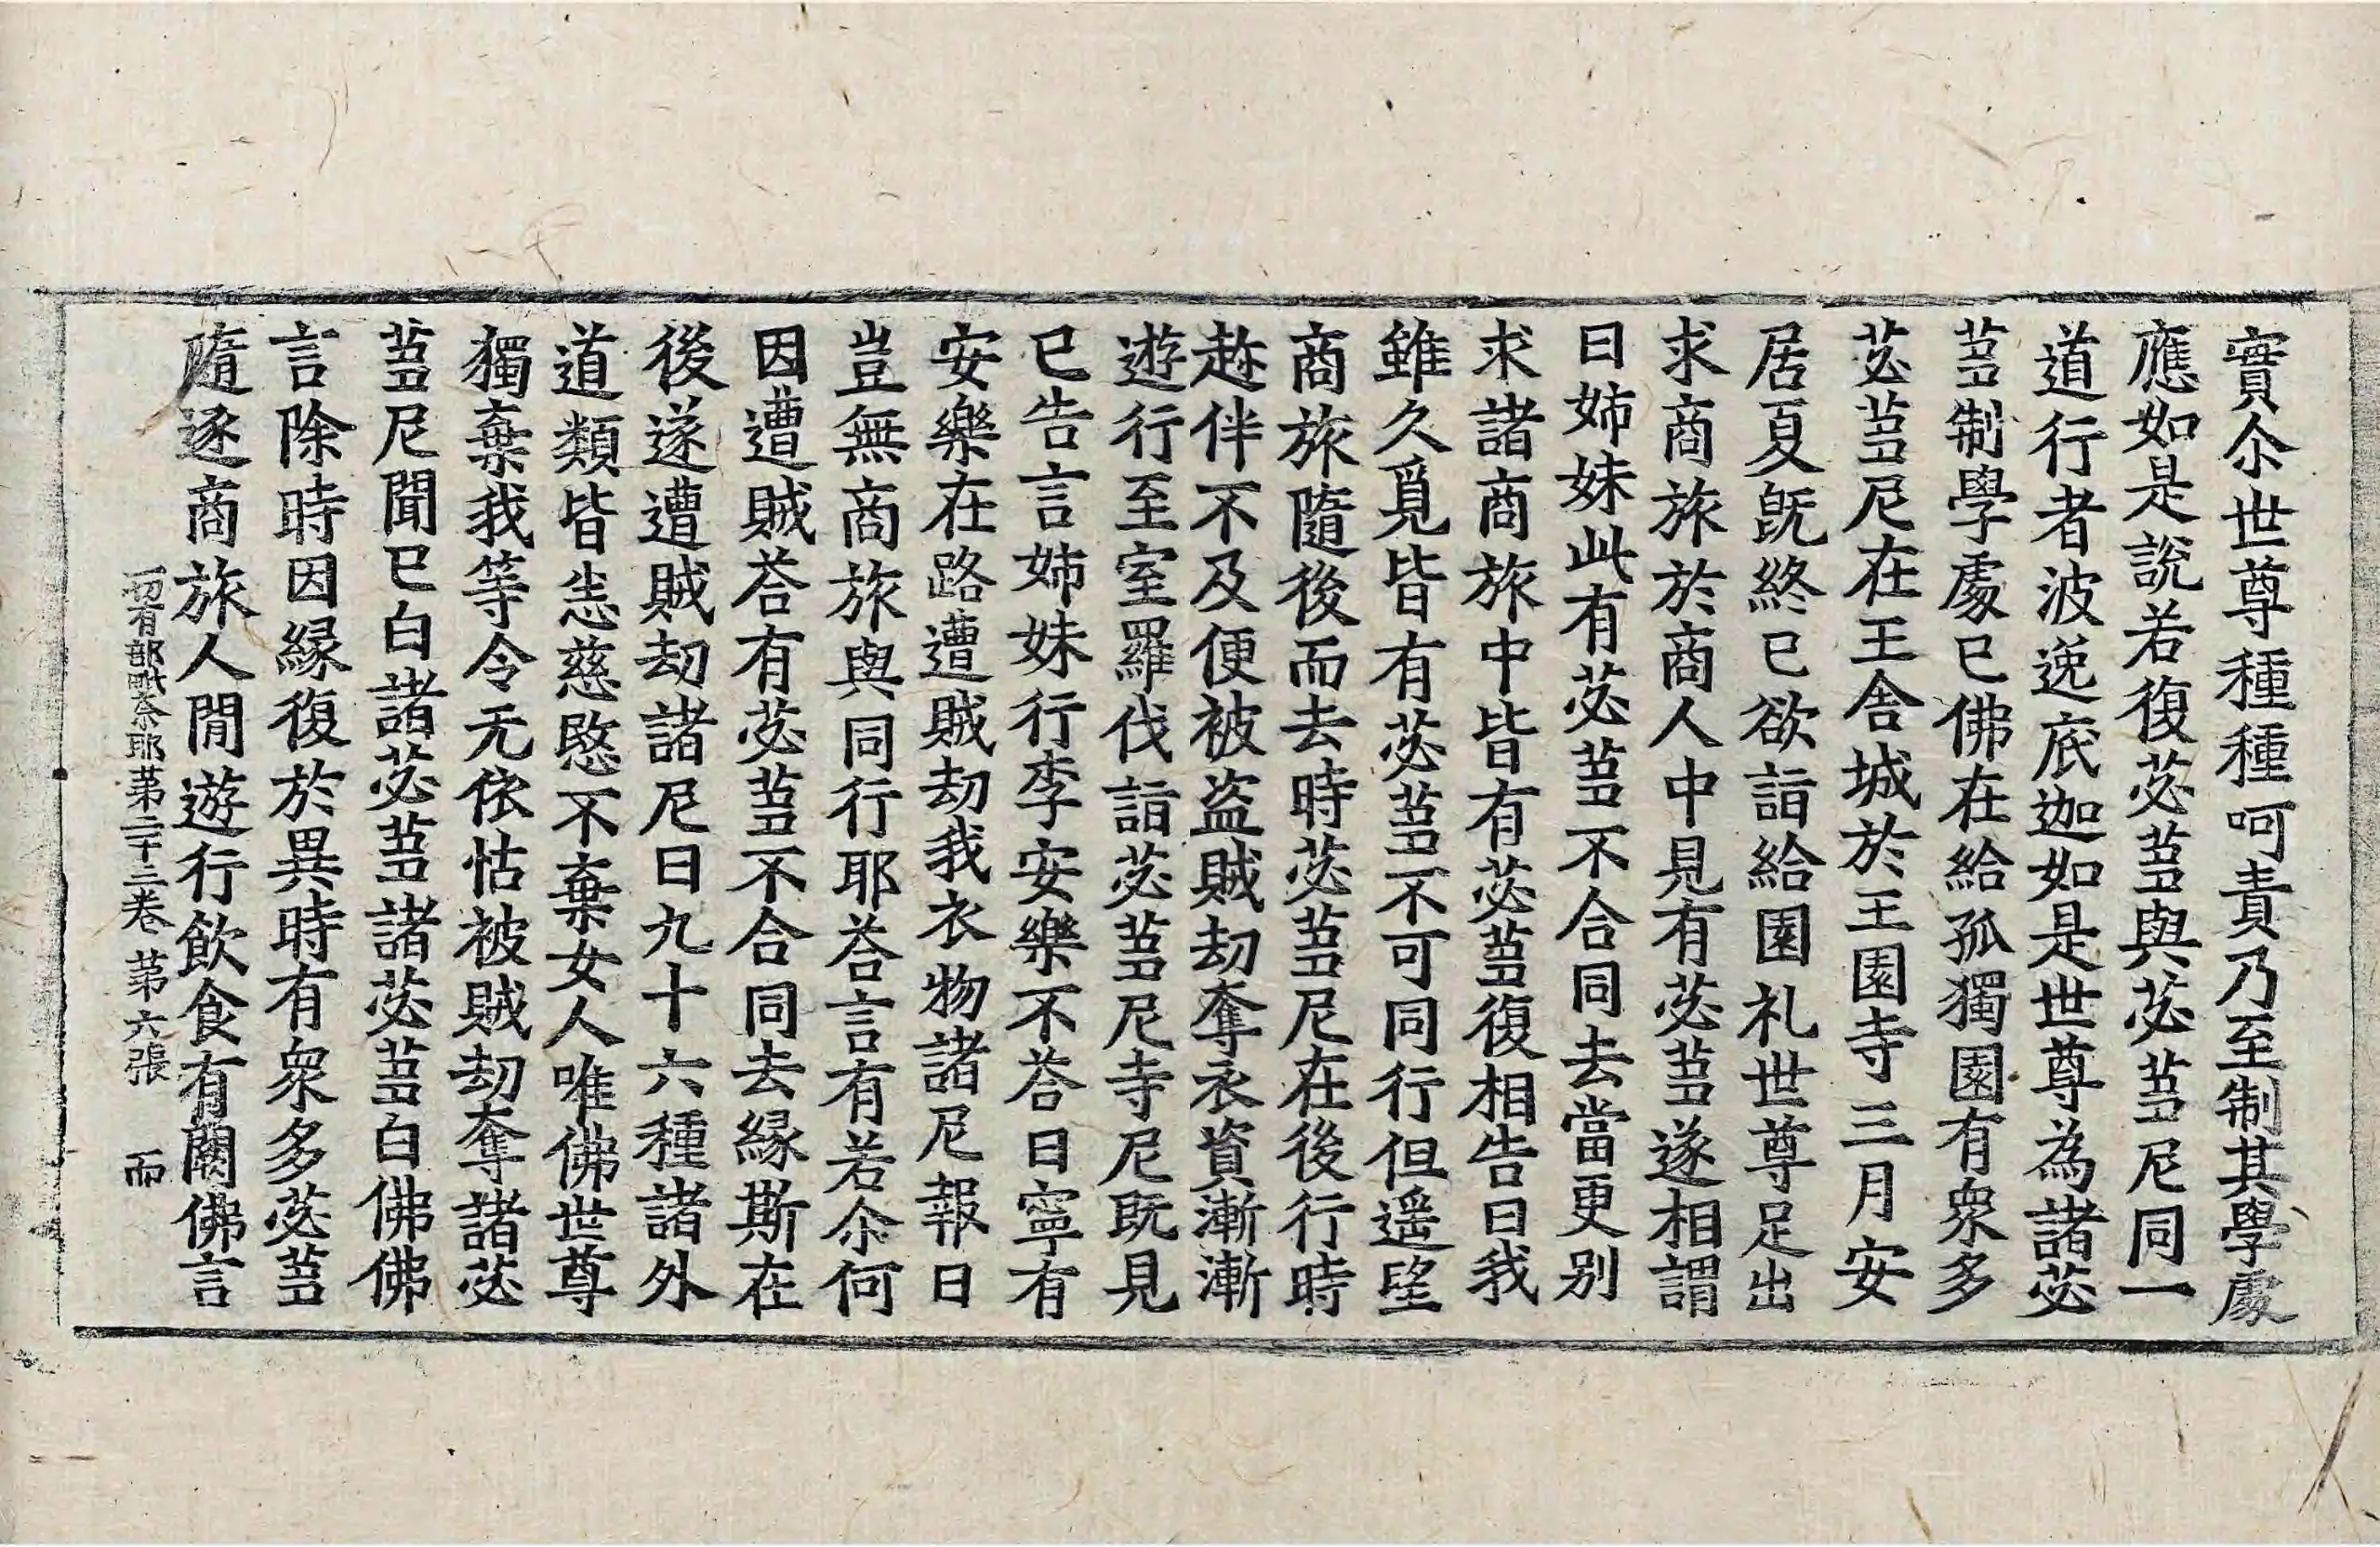 實尒世尊種種呵責乃至制其學處
應如是說若復苾芻與苾芻尼同一
道行者波逸底迦如是世尊為諸苾
芻制學處已佛在給孤獨園有衆多
苾芻尼在王舍城於王園寺三月安
居夏旣終已欲詣給園礼世尊足出
求商旅於商人中見有苾芻遂相謂
曰姊妹此有苾芻不合同去當更別
求諸商旅中皆有苾芻復相告曰我
雖久覓皆有苾芻不可同行但遥望
商旅隨後而去時苾芻尼在後行時
趂伴不及便被盗賊劫奪衣資漸漸
遊行至室羅伐詣苾芻尼寺尼旣見
已告言姊妹行李安樂不荅曰寧有
安樂在路遭賊劫我衣物諸尼報曰
豈無商旅與同行耶荅言有若尒何
因遭賊荅有苾芻不合同去緣斯在
後遂遭賊劫諸尼曰九十六種諸外
道類皆恙慈愍不棄女人唯佛世尊
獨棄我等令无依怙被賊劫奪諸苾
芻尼聞已白諸苾芻諸苾芻白佛佛
言除時因緣復於異時有衆多苾芻
隨逐商旅人閒遊行飲食有闕佛言
一切有部毗奈耶第二十三卷 第六張 而